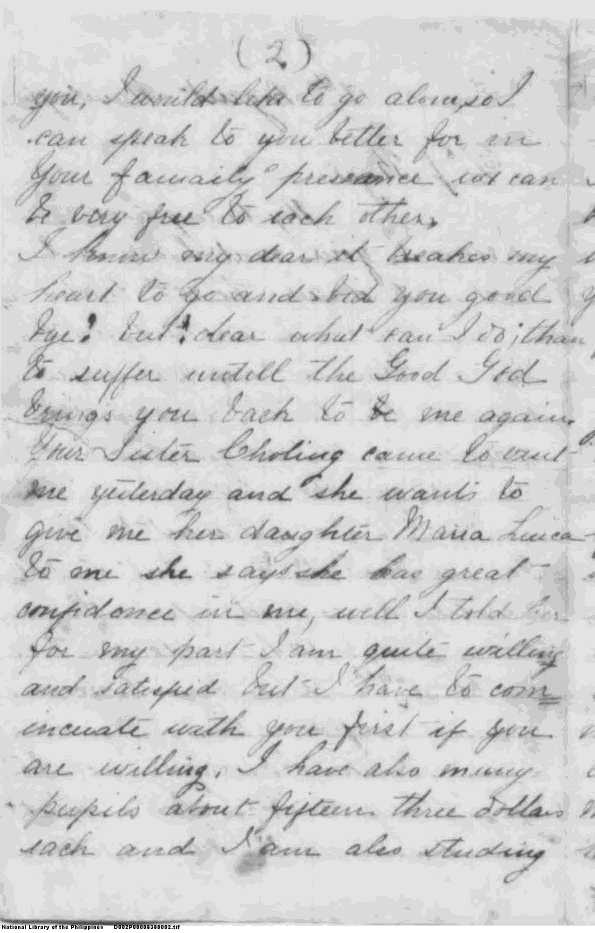 (2)
you, I would like to go alone, so I
can speak to you better for in
Your famaily presance we can
be very free to each other.
I know my dear it breakes my
heart to go and bid you good
bye! but! dear what can I do; than
to suffer untill the Good God
brings you back to be me again.
Your Sister Choling came to visit
me yesterday and she wants to
give me her daughter Maria Luica
to me she says she has great
confidence in me, well I told her
for my part I am quite willing
and satisfied but I have to com=
incuate with you first if you
are willing. I have also many
pupils about fifteen three dollars
each and I am also studing
National Library of the Philippines